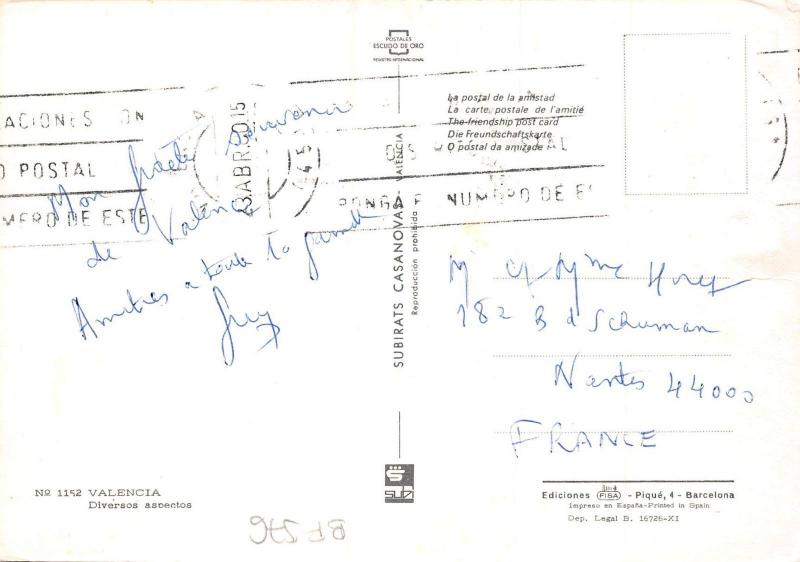 POSTALES
ESCUDO DE ORO
REGISTRO INTERNACIONAL
La postal de la amistad
La carte postale de l'amitié
The friendship post card
Die Freundschaftskarte
O postal da amizade
ACIONES
O POSTAL
MERO DE ESTE
ABR
PONGA
NUMERO DE
Mon
de Valence
Amitiés a toute la famille
Guy
SUBIRATS CASANOVAS - VALENCIA
Reproducción prohibida
M et Mme
182 Bd Schuman
Nantes 44000
FRANCE
Nº 1152 VALENCIA
Diversos aspectos
BF 576
SUBI
Ediciones FISA - Piqué, 4 - Barcelona
Impreso en España-Printed in Spain
Dep. Legal B. 16726-XI